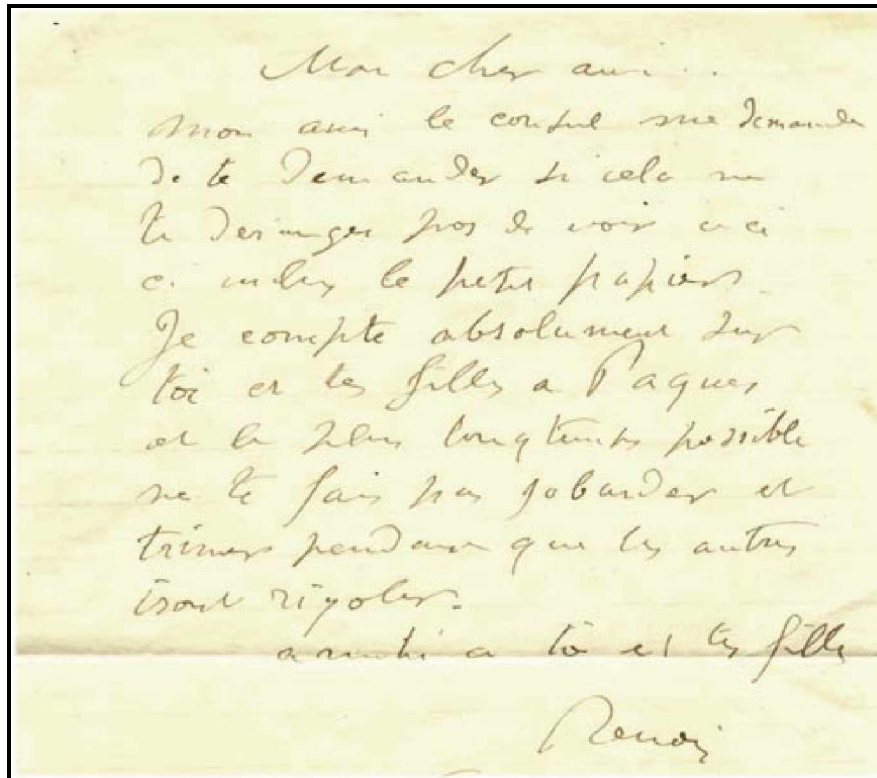 Mon cher ami..
mon ami le consul me demande
de te demander si cela ne
te deranges pas de voir
ci le petit papier.
Je compte absolument sur
toi et tes filles a Paques
et le plus longtemps possible
ne te fais pas jobarder et
trimer pendant que les autres
iront rigoler.
a toi et tes filles
Renoir